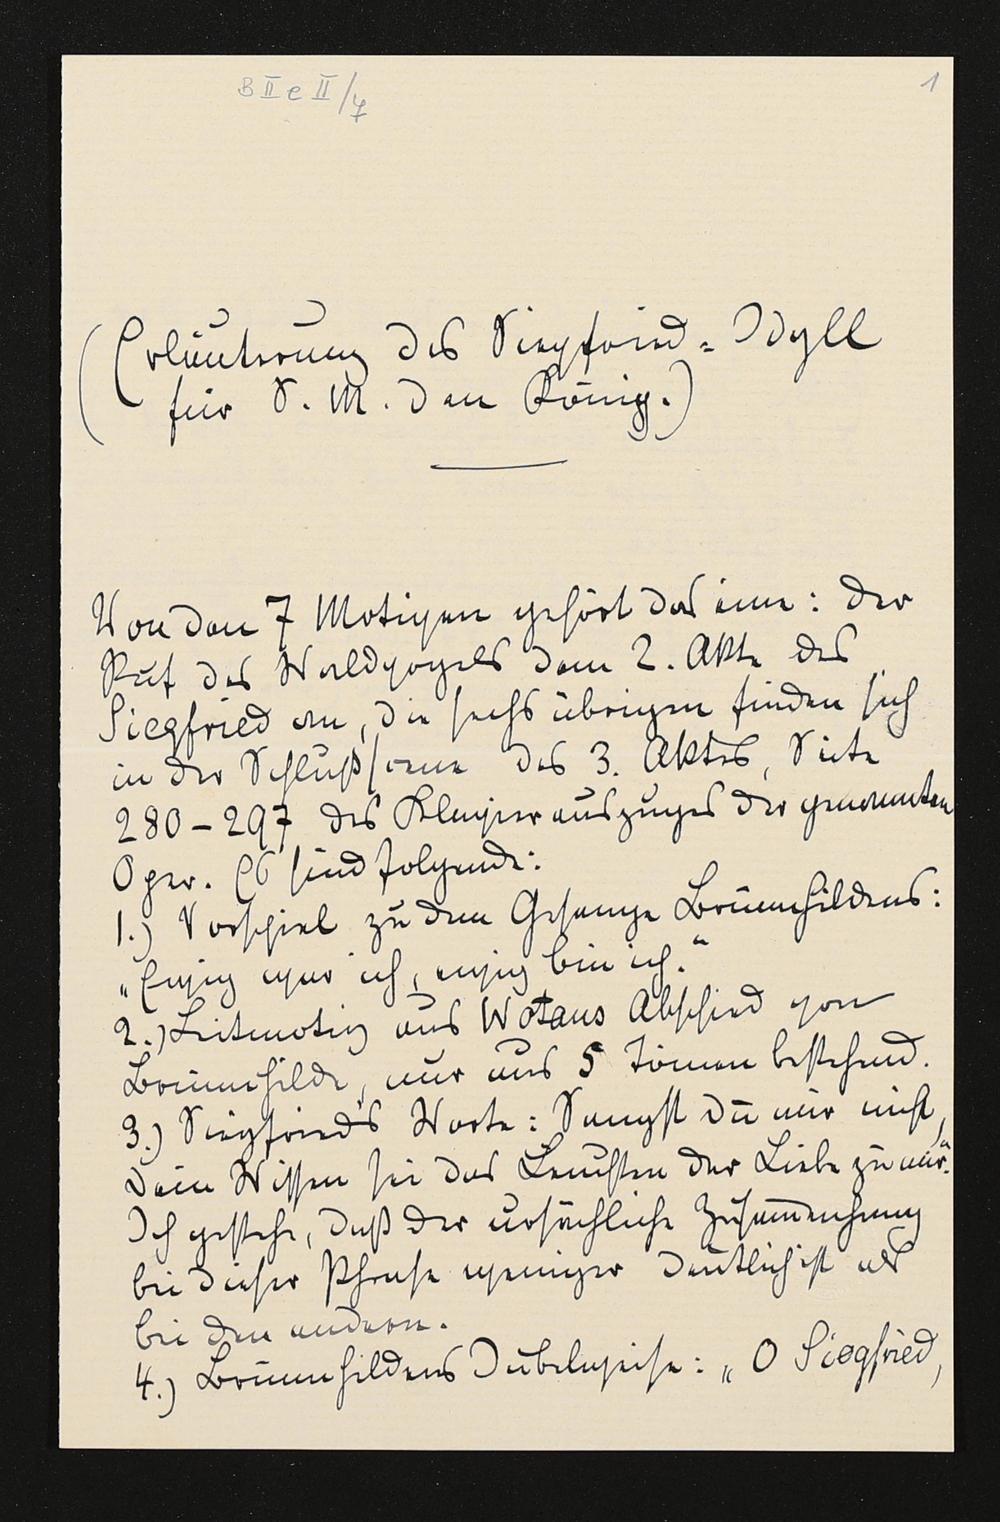 B II e II/7
1
(Erläuterung des Siegfried-Idyll
für S. M. den König.)
Von den 7 Motiven gehört das eine: der
Ruf des Waldvogels dem 2. Akte des
Siegfried an, die sechs übrigen finden sich
in der Schlußscene des 3. Aktes, Seite
280 – 297 des Klavierauszuges der genannten
Oper. Es sind folgende:
1.) Vorspiel zu dem Gesange Brünnhildens:
„Ewig war ich, ewig bin ich.“
2.) Leitmotiv aus Wotans Abschied von
Brünnhilde, nur aus 5 Tönen bestehend.
3.) Siegfried's Worte: Sangst du mir nicht,
dein Wissen sei das Leuchten der Liebe zu mir.
Ich gestehe, daß der ursächliche Zusam̄enhang
bei dieser Phrase weniger deutlich ist als
bei den andern.
4.) Brünnhildens Jubelweise: „O Siegfried,